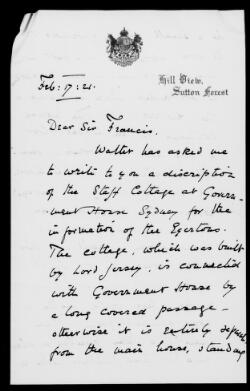 Hill View,
Sutton Forest
Feb: 17: 21.
Dear Sir Francis.
Walter has asked me
to write to you a discription
of the Staff Cottage at Govern-
ment House Sydney for the
information of the Egertons.
The cottage, which was built
by Lord Jersey, is connected
with Government House by
a long covered passage-
otherwise it is entirely
from the main house, standing